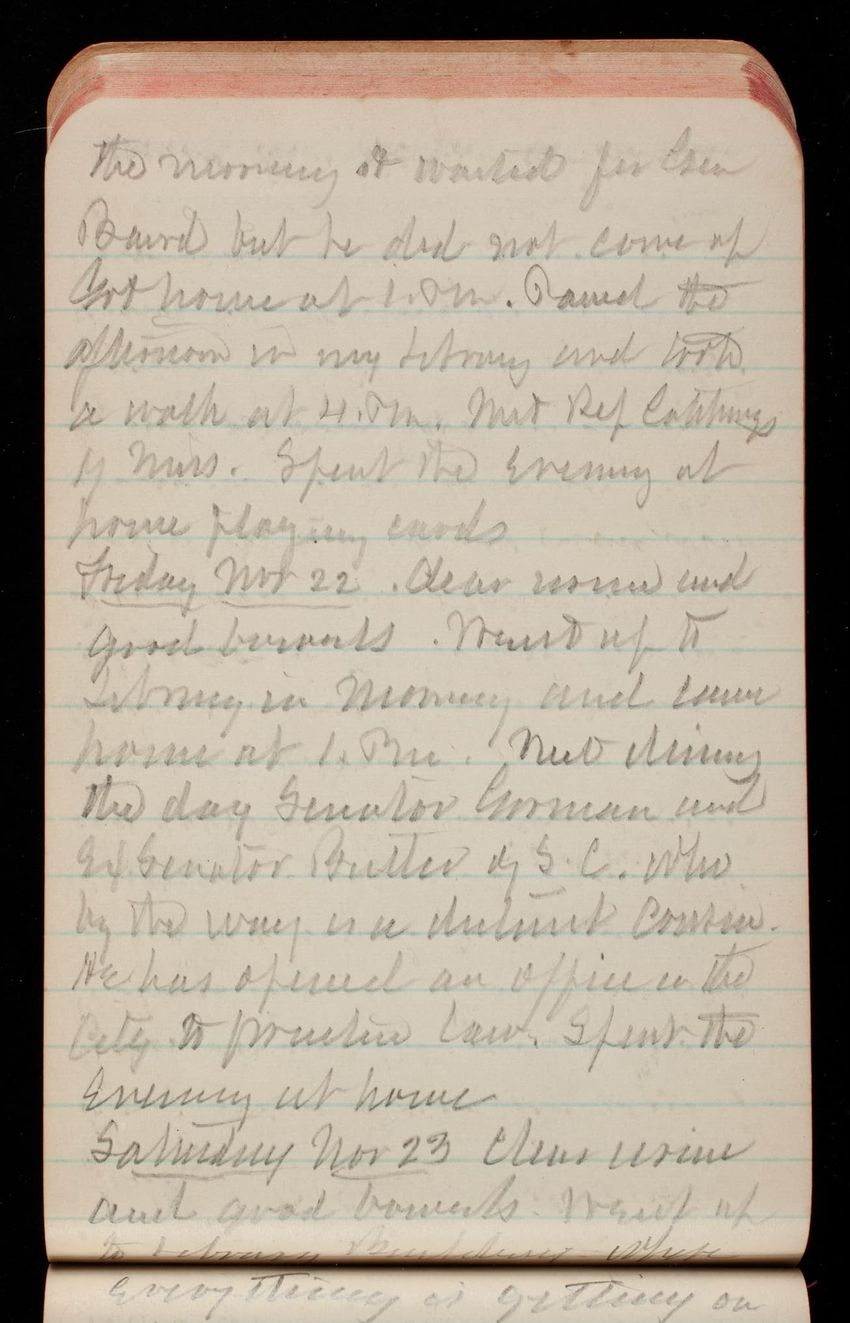 the morning & waited for Gen
Baird but he did not come up
Got home at 1. P.m. Passed the
afternoon in my Library and took
a walk at 4. P.m. Met Rep Catchings
of Miss. Spent the Evening at
home playing cards
Friday Nov 22 . Clear urine and
good bowels . Went up to
Library in Morning and came
home at 1. P.m. Met during
the day Senator Gorman and
Ex Senator Butler of S.C. who
by the way is a distant Cousin.
He has opened an office in the
City to practice law. Spent the
Evening at home
Saturday Nov 23 Clear urine
and good bowels. Went up
to Library Building where
Everything is getting on